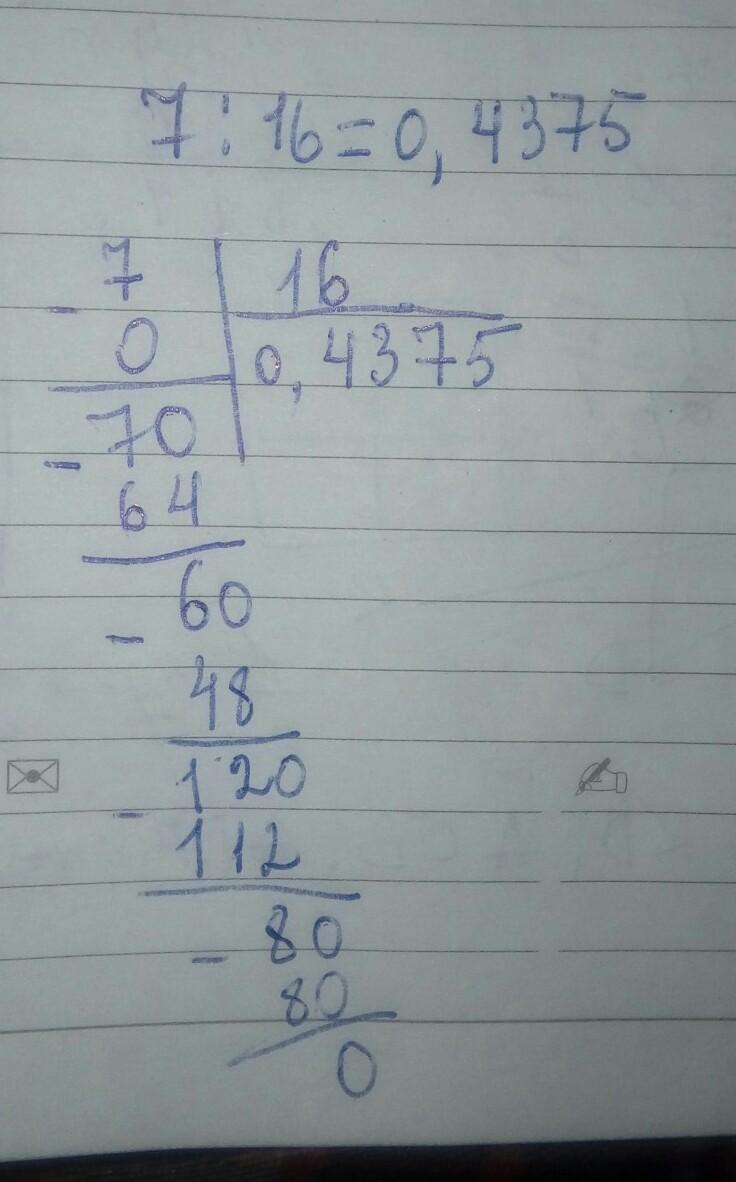 7 : 16 = 0,4375
- 7 | 16
0 | 0,4375
- 70
64
- 60
48
- 120
112
- 80
80
0